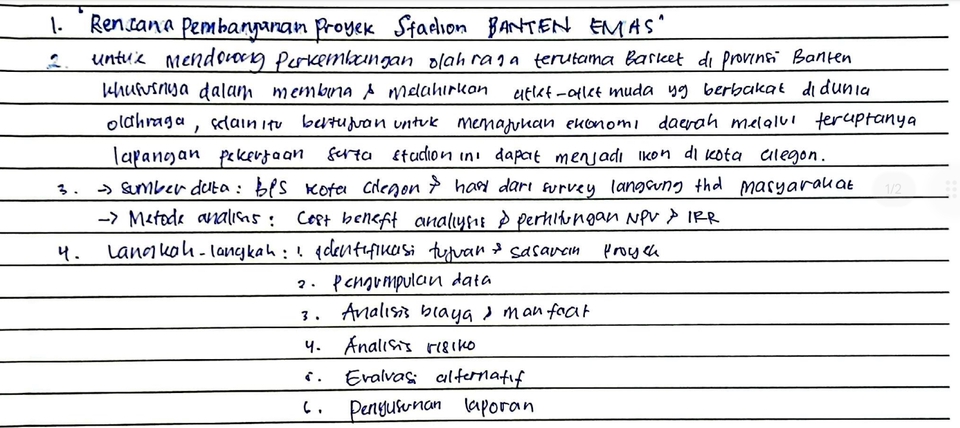 1. "Rencana Pembangunan Proyek Stadion BANTEN EMAS"
2. untuk mendorong perkembangan olahraga terutama Basket di provinsi Banten
khususnya dalam membina & melahirkan atlet-atlet muda yg berbakat di dunia
olahraga, selain itu bertujuan untuk memajukan ekonomi daerah melalui terciptanya
lapangan pekerjaan serta stadion ini dapat menjadi ikon di kota cilegon.
3. → sumber data : BPS kota cilegon & hasil dari survey langsung thd masyarakat
→ Metode analisis : Cost benefit analysis & perhitungan NPV & IRR
4. Langkah-langkah : 1. Identifikasi tujuan & sasaran proyek
2. pengumpulan data
3. Analisis biaya & manfaat
4. Analisis risiko
5. Evaluasi alternatif
6. Penyusunan laporan
1/2